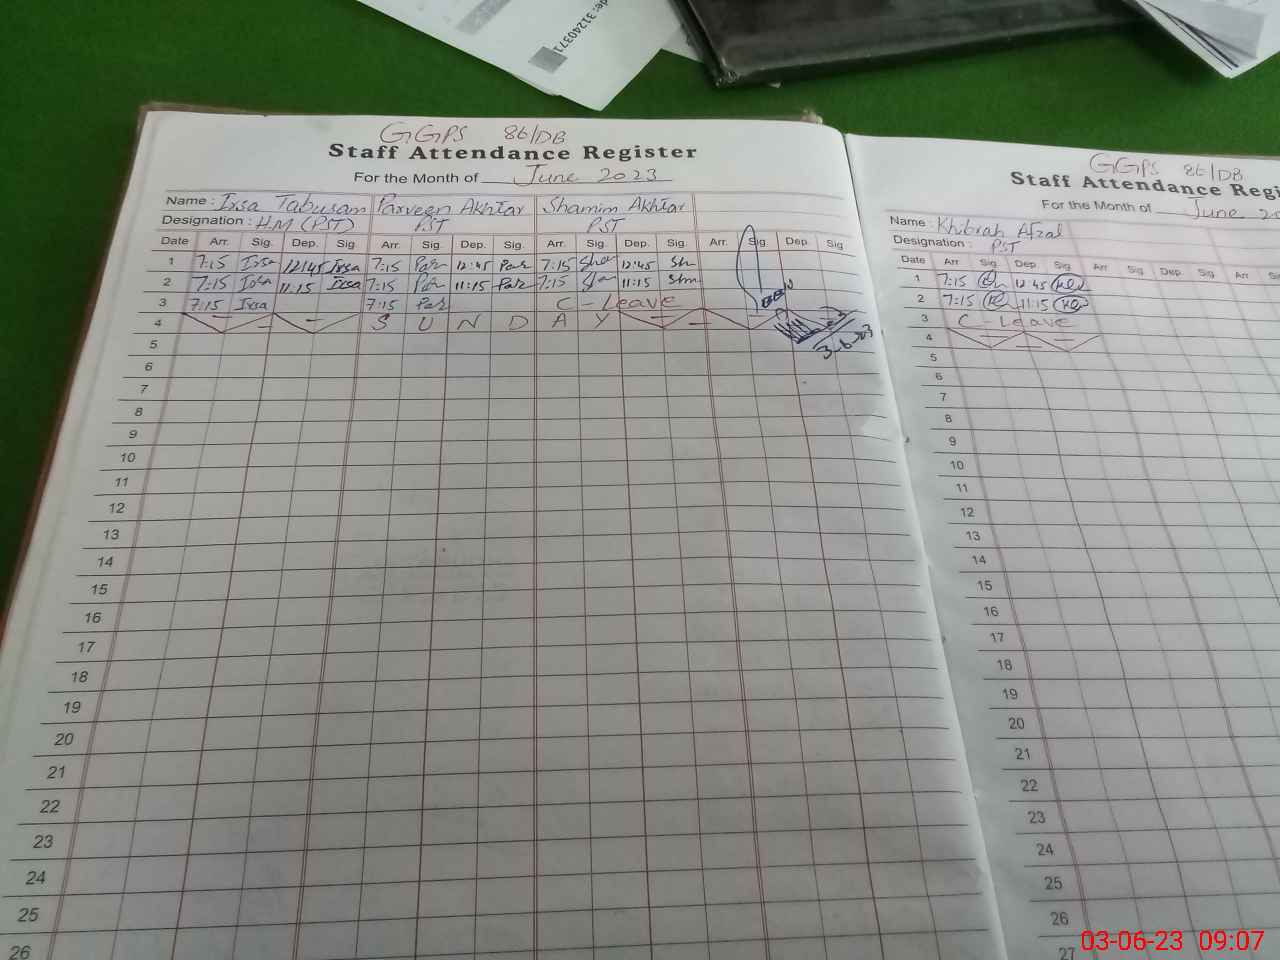 de: 31240371
GGPS 86/DB
Staff Attendance Register
For the Month of June 2023
Name : Irsa Tabusam Parveen Akhtar Shamim Akhtar
Designation : H.M (PST) PST PST
Date Arr. Sig. Dep. Sig Arr. Sig. Dep. Sig. Arr. Sig. Dep. Sig. Arr. Sig Dep. Sig
1 7:15 Irsa 12:45 Irsa 7:15 Par 12:45 Par 7:15 Sha 12:45 Sh
2 7:15 Irsa 11:15 Irsa 7:15 Par 11:15 Par 7:15 Sha 11:15 Shm
3 7:15 Irsa 7:15 Par C - Leave
4 S U N D A Y
3-6-23
5
6
7
8
9
10
11
12
13
14
15
16
17
18
19
20
21
22
23
24
25
26
GGPS 86/DB
Staff Attendance Regi
For the Month of June 20
Name : Khibrah Afzal
Designation : PST
Date Arr. Sig. Dep. Sig. Arr Sig. Dep. Sig. Arr. Si
1 7:15 12:45
2 7:15 11:15
3 C - Leave
4
5
6
7
8
9
10
11
12
13
14
15
16
17
18
19
20
21
22
23
24
25
26
27
03-06-23 09:07